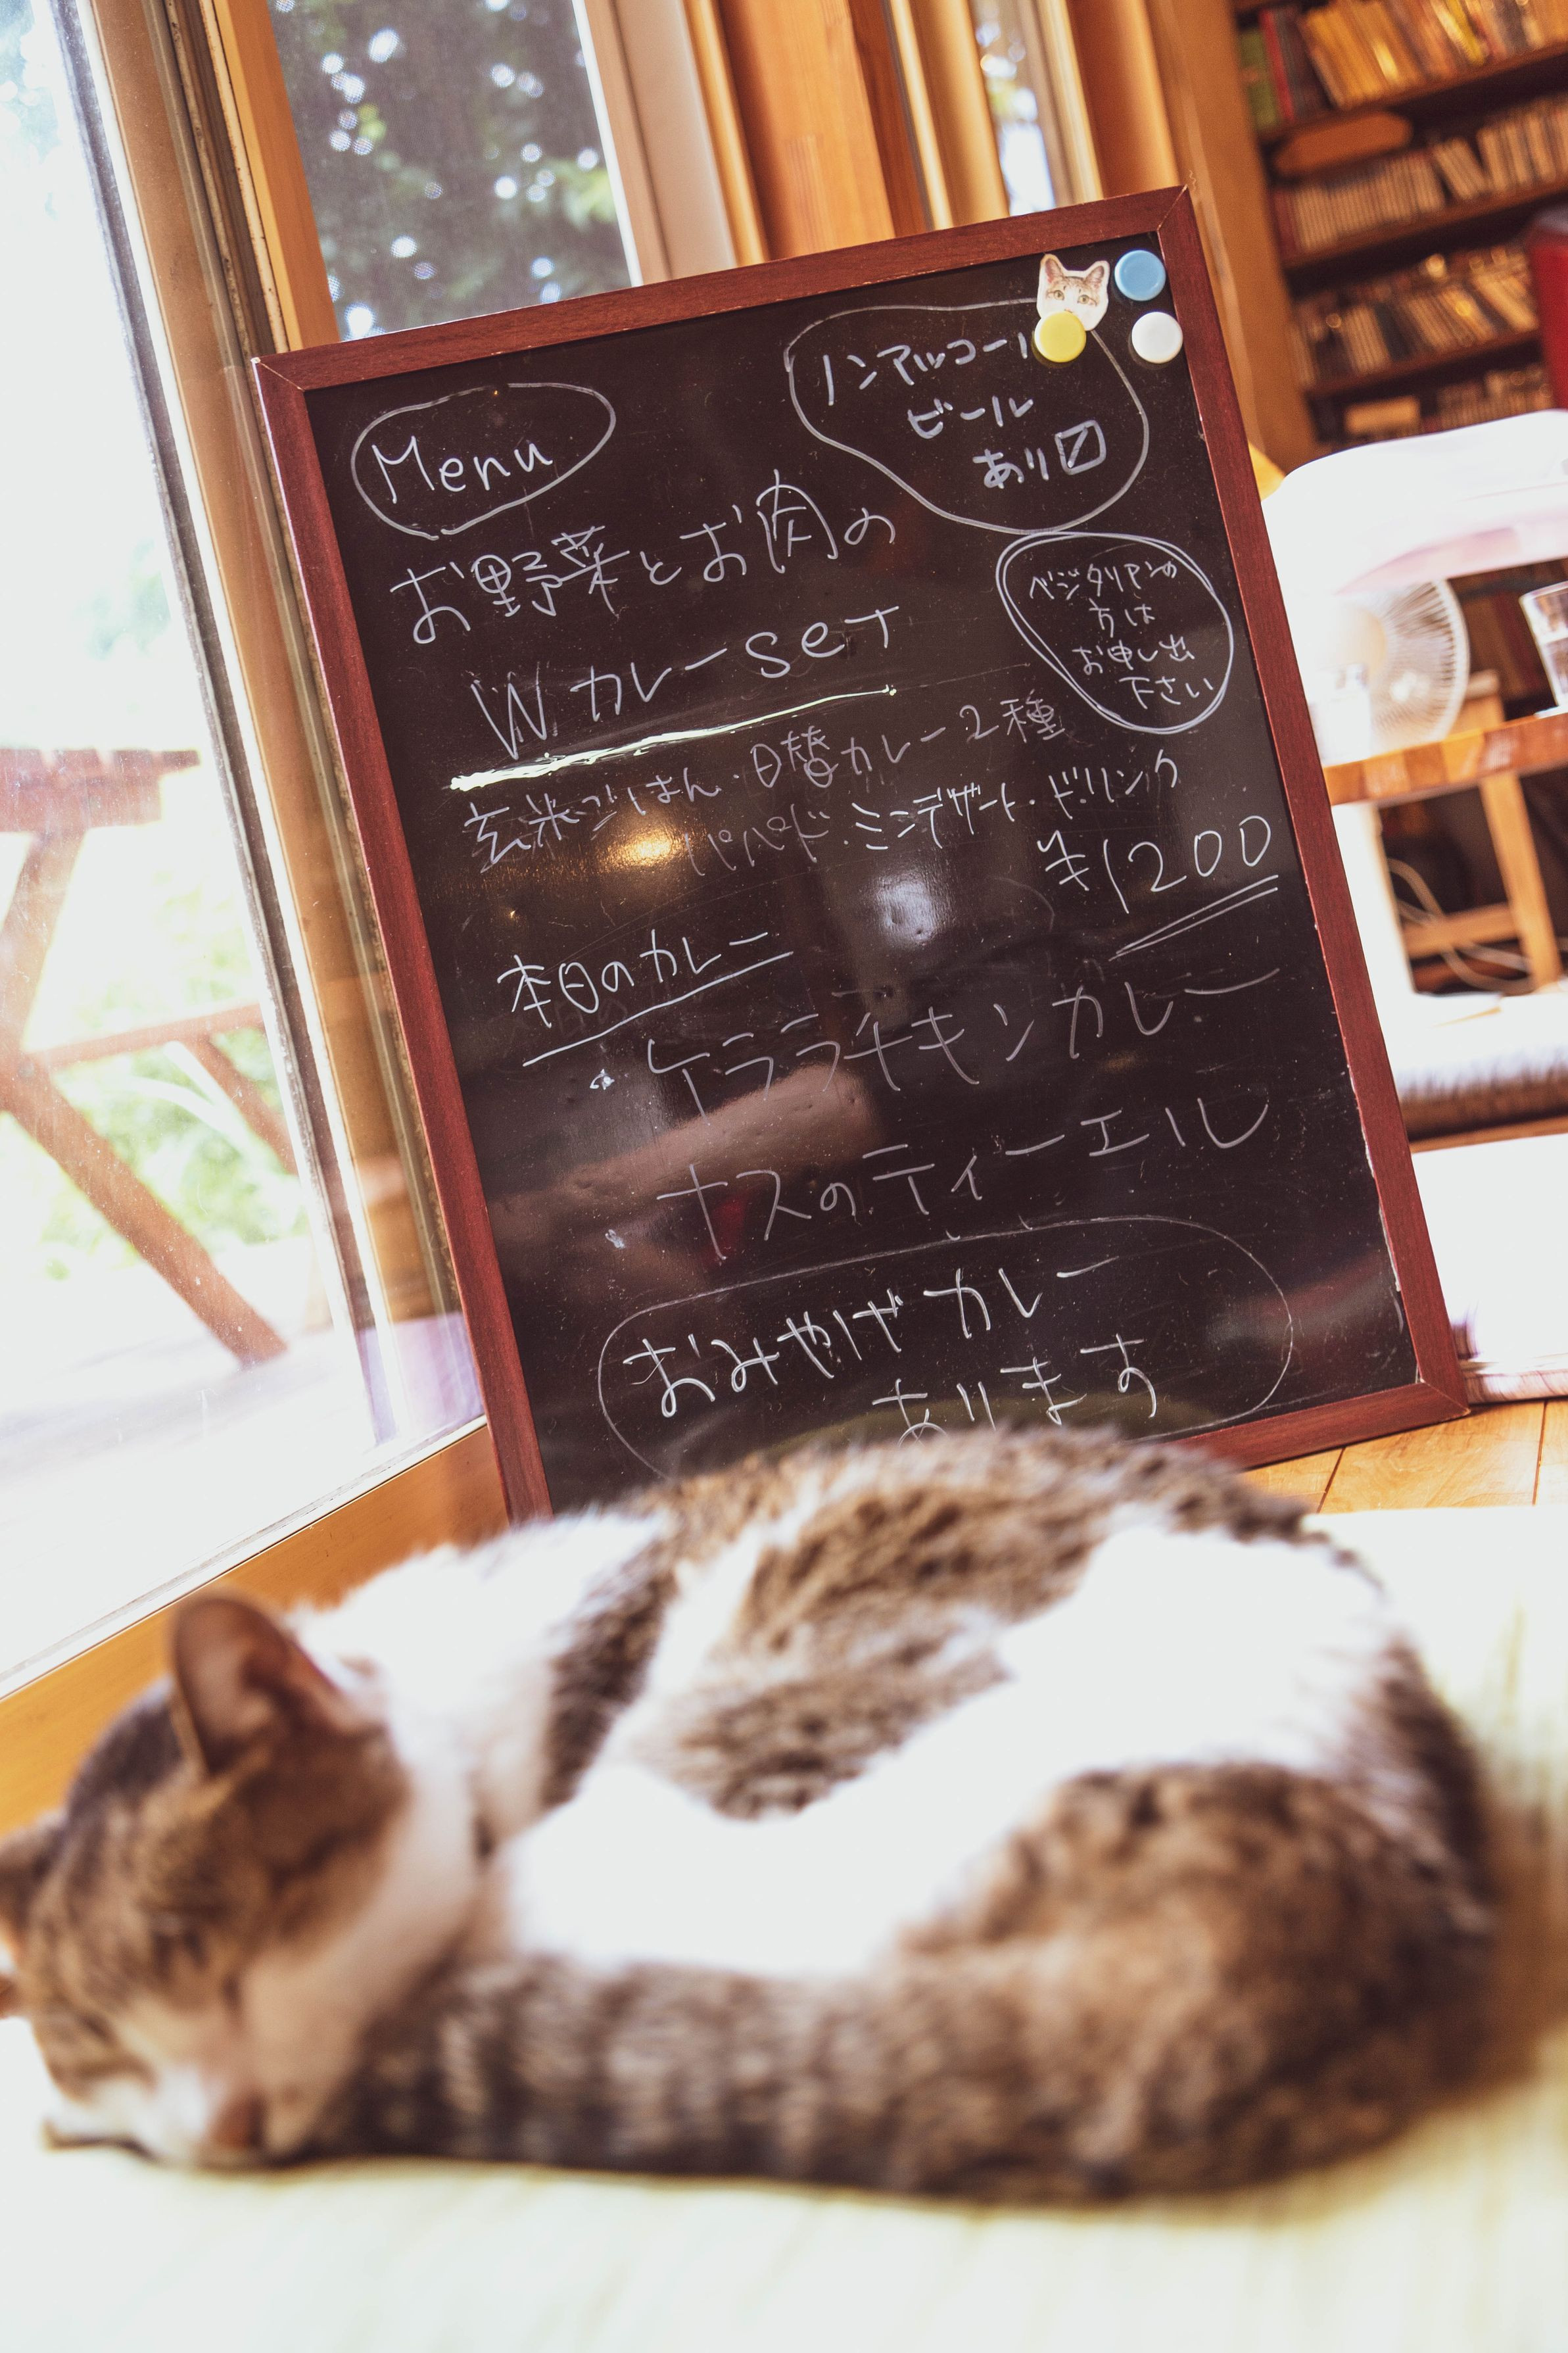 Menu
ノンアルコール
ビール
あり〼
お野菜とお肉の
Wカレーset
ベジタリアンの
方は
お申し出
下さい
玄米ごはん・日替カレー2種
パパド・ミニデザート・ドリンク
¥1200
本日のカレー
・ケララチキンカレー
・ナスのティーエル
おみやげカレー
あります